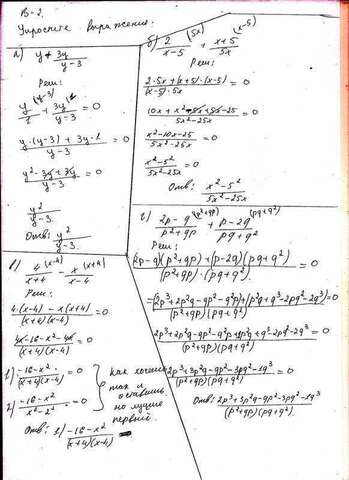 В-2.
Упростите выражения.
а) y + 3y/(y-3)
Реш:
y/1 (y-3) + 3y/(y-3) = 0
(y·(y-3) + 3y·1)/(y-3) = 0
(y²-3y+3y)/(y-3) = 0
y²/(y-3)
Отв: y²/(y-3)
б) 2/(x-5) (5x) + (x+5)/5x (x-5)
Реш:
(2·5x+(x+5)·(x-5))/((x-5)·5x) = 0
(10x+x²-5x+5x-25)/(5x²-25x) = 0
(x²-10x-25)/(5x²-25x) = 0
(x²-5²)/(5x²-25x) = 0
Отв: (x²-5²)/(5x²-25x)
в) 4/(x+4) (x-4) - x/(x-4) (x+4)
Реш:
(4·(x-4) - x(x+4))/((x+4)(x-4)) = 0
(4x-16-x²-4x)/((x+4)(x-4)) = 0
1) (-16-x²)/((x+4)(x-4)) = 0
2) (-16-x²)/(x²-2²) = 0
как хочешь
так и
оставишь
но лучше
первый.
Отв: 1) (-16-x²)/((x+4)(x-4))
г) (2p-q)/(p²+qp) (p²+qp) + (p-2q)/(pq+q²) (pq+q²)
Реш:
((2p-q)(p²+qp)+(p-2q)(pq+q²))/((p²+qp)·(pq+q²)) = 0
=((2p³+2p²q-qp²-q²p)+(p²q+q³-2pq²-2q³))/((p²+qp)(pq+q²)) = 0
(2p³+2p²q-qp²-q²p+p²q+q³-2pq²-2q³)/((p²+qp)(pq+q²)) = 0
(2p³+3p²q-qp²-3pq²-1q³)/((p²+qp)(pq+q²)) = 0
Отв: (2p³+3p²q-qp²-3pq²-1q³)/((p²+qp)(pq+q²))